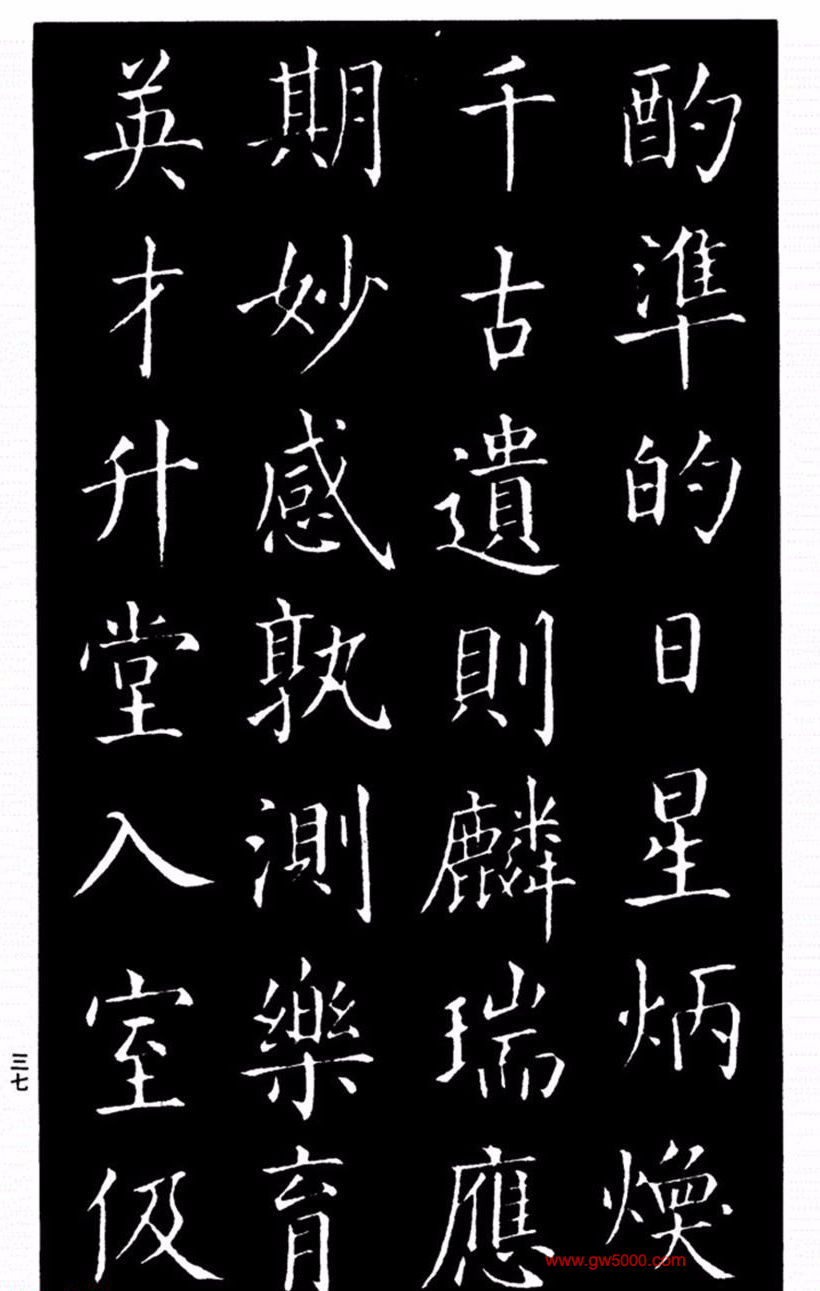 酌準的日星炳煥
千古遺則麟瑞應
期妙感孰測樂育
英才升堂入室伋
三七
www.gw5000.com